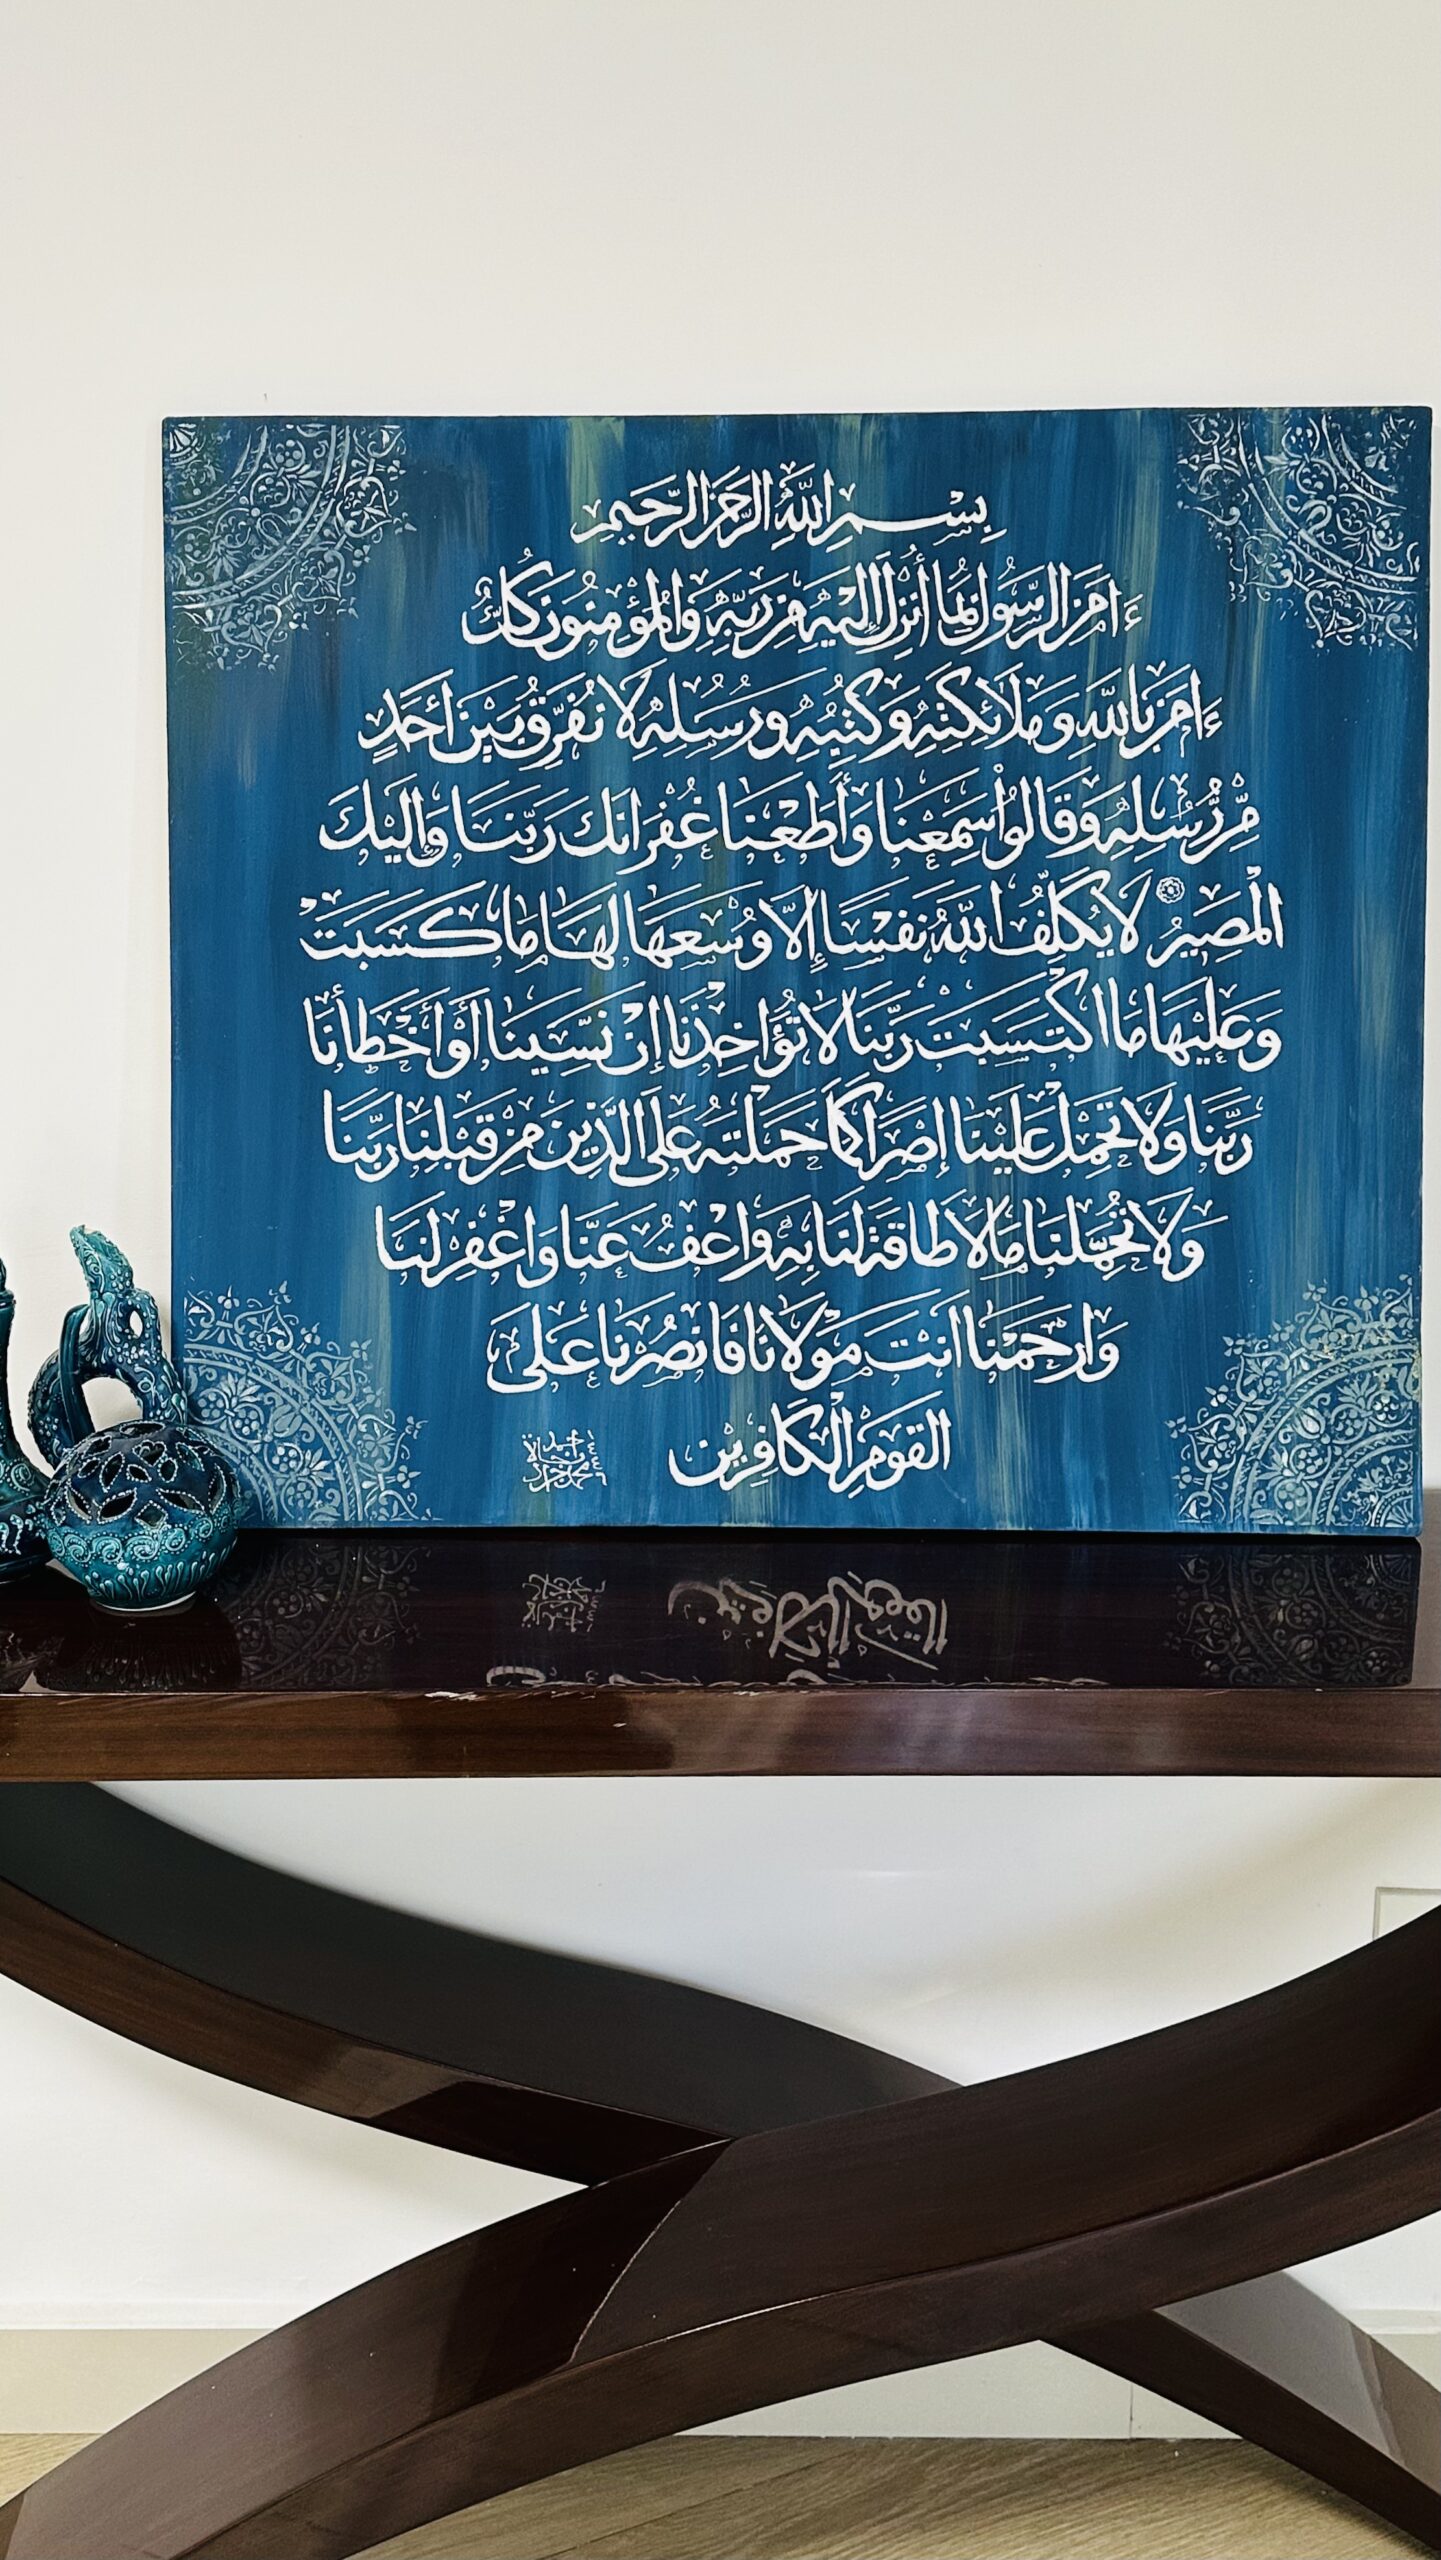 بِسْمِ اللَّهِ الرَّحْمَنِ الرَّحِيمِ
ءَامَنَ الرَّسُولُ بِمَا أُنزِلَ إِلَيْهِ مِن رَبِّهِ وَالْمُؤْمِنُونَ كُلٌّ
ءَامَنَ بِاللَّهِ وَمَلَائِكَتِهِ وَكُتُبِهِ وَرُسُلِهِ لَا نُفَرِّقُ بَيْنَ أَحَدٍ
مِّن رُّسُلِهِ وَقَالُوا سَمِعْنَا وَأَطَعْنَا غُفْرَانَكَ رَبَّنَا وَإِلَيْكَ
الْمَصِيرُ لَا يُكَلِّفُ اللَّهُ نَفْسًا إِلَّا وُسْعَهَا لَهَا مَا كَسَبَتْ
وَعَلَيْهَا مَا اكْتَسَبَتْ رَبَّنَا لَا تُؤَاخِذْنَا إِن نَّسِينَا أَوْ أَخْطَأْنَا
رَبَّنَا وَلَا تَحْمِلْ عَلَيْنَا إِصْرًا كَمَا حَمَلْتَهُ عَلَى الَّذِينَ مِنْ قَبْلِنَا رَبَّنَا
وَلَا تُحَمِّلْنَا مَا لَا طَاقَةَ لَنَا بِهِ وَاعْفُ عَنَّا وَاغْفِرْ لَنَا
وَارْحَمْنَا أَنْتَ مَوْلَانَا فَانْصُرْنَا عَلَى
الْقَوْمِ الْكَافِرِينَ